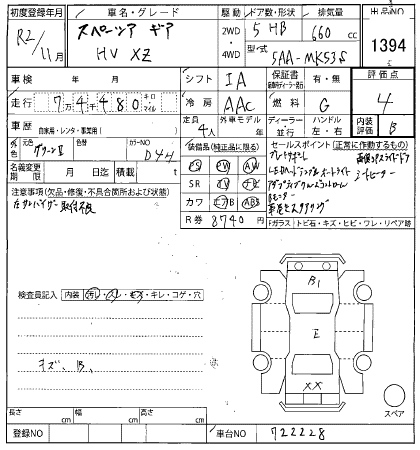 初度登録年月 車名・グレード 駆動 ドア数・形状 排気量 出品NO
R2/11月 スペーシア ギア HV XZ 2WD・4WD 5 HB 660 cc 1394
型・式 5AA-MK53S
車検 年 月 シフト IA 保証書 有・無 評価点
走行 7万4千480 キロ マイル 冷房 AAC 燃料 G 4
車歴 自家用・レンタ・事業用( ) 定員 4人 外車モデル 年 ディーラー・並行 ハンドル 左・右 内装評価 B
色 元色 グリーンⅡ カラーNO D44 装備品(純正品に限る) セールスポイント(正常に作動するもの)
名義変更期限 月 日 積載 t PS PW AW
SR TV ナビ
カワ エアB ABS
R券 8740 円
注意事項(欠品・修復・不具合箇所および状態)
左サンバイザー取付不良
LEDヘッドランプ オートライト
シートヒーター
Fガラス トビ石・キズ・ヒビ・ワレ・リペア跡
検査員記入 内装 汚れ・スレ・キズ・キレ・コゲ・穴
キズ、B、
B1
E
XX
スペア
長さ cm 幅 cm 高さ cm
登録NO 車台NO 722228